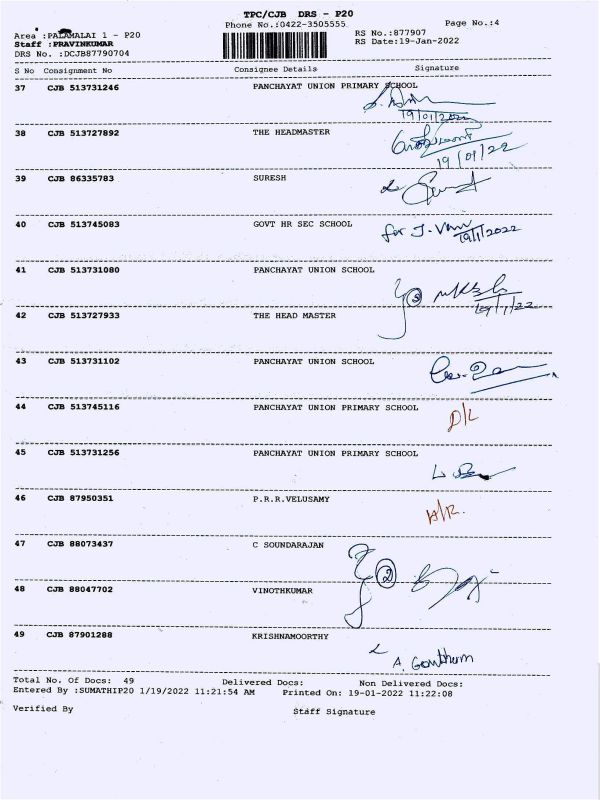 TPC/CJB DRS - P20
Phone No.:0422-3505555 Page No.:4
Area :PALAMALAI 1 - P20 RS No.:877907
Staff :PRAVINKUMAR RS Date:19-Jan-2022
DRS No. :DCJB87790704
S No Consignment No Consignee Details Signature
37 CJB 513731246 PANCHAYAT UNION PRIMARY SCHOOL
19/01/2022
38 CJB 513727892 THE HEADMASTER
19/01/22
39 CJB 86335783 SURESH
40 CJB 513745083 GOVT HR SEC SCHOOL
for J.
19/1/2022
41 CJB 513731080 PANCHAYAT UNION SCHOOL
42 CJB 513727933 THE HEAD MASTER
43 CJB 513731102 PANCHAYAT UNION SCHOOL
44 CJB 513745116 PANCHAYAT UNION PRIMARY SCHOOL
D/L
45 CJB 513731256 PANCHAYAT UNION PRIMARY SCHOOL
46 CJB 87950351 P.R.R.VELUSAMY
47 CJB 88073437 C SOUNDARAJAN
2
48 CJB 88047702 VINOTHKUMAR
49 CJB 87901288 KRISHNAMOORTHY
A. Gowtham
Total No. Of Docs: 49 Delivered Docs: Non Delivered Docs:
Entered By :SUMATHIP20 1/19/2022 11:21:54 AM Printed On: 19-01-2022 11:22:08
Verified By Staff Signature